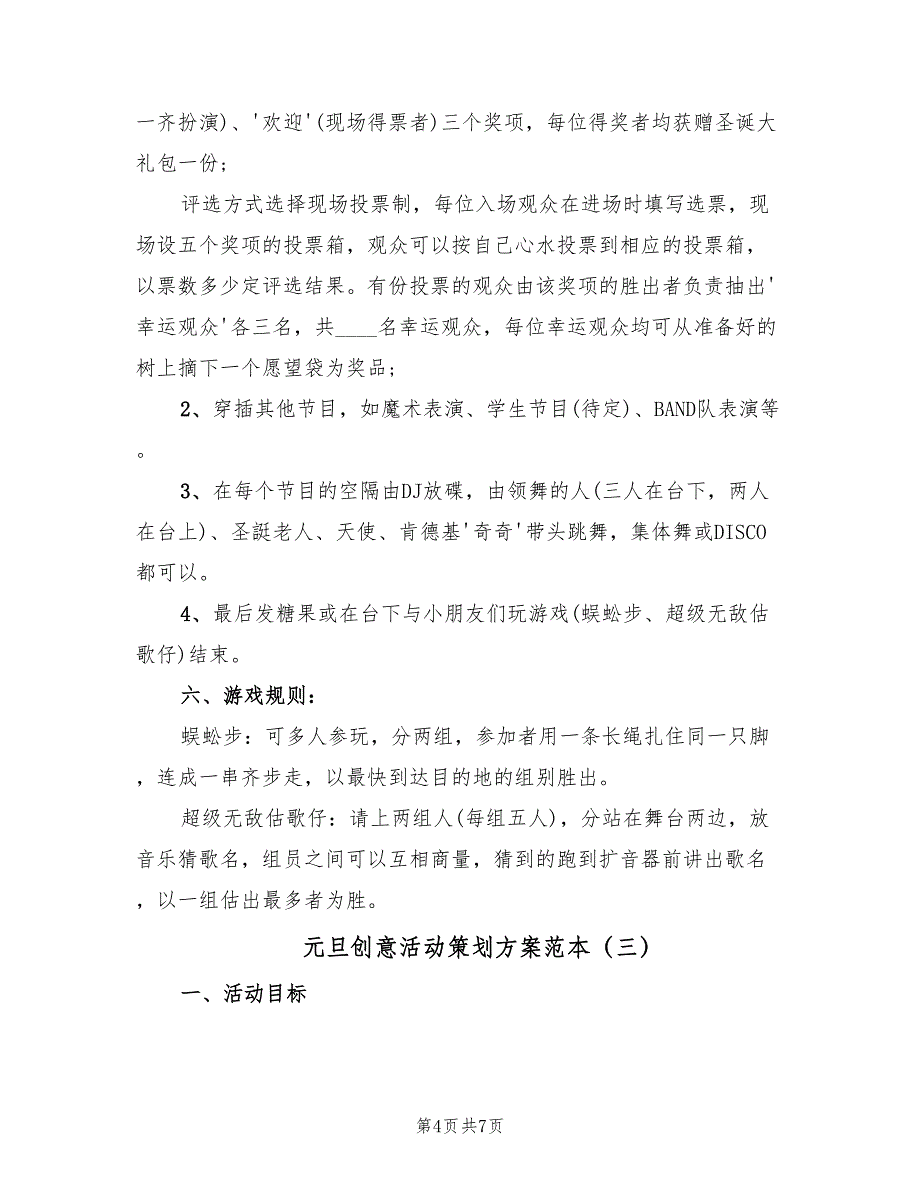 一齐扮演)、'欢迎'(现场得票者)三个奖项，每位得奖者均获赠圣诞大
礼包一份;
评选方式选择现场投票制，每位入场观众在进场时填写选票，现
场设五个奖项的投票箱，观众可以按自己心水投票到相应的投票箱，
以票数多少定评选结果。有份投票的观众由该奖项的胜出者负责抽出'
幸运观众'各三名，共____名幸运观众，每位幸运观众均可从准备好的
树上摘下一个愿望袋为奖品;
2、穿插其他节目，如魔术表演、学生节目(待定)、BAND队表演等
。
3、在每个节目的空隔由DJ放碟，由领舞的人(三人在台下，两人
在台上)、圣誕老人、天使、肯德基'奇奇'带头跳舞，集体舞或DISCO
都可以。
4、最后发糖果或在台下与小朋友们玩游戏(蜈蚣步、超级无敌估
歌仔)结束。
六、游戏规则：
蜈蚣步：可多人参玩，分两组，参加者用一条长绳扎住同一只脚
，连成一串齐步走，以最快到达目的地的组别胜出。
超级无敌估歌仔：请上两组人(每组五人)，分站在舞台两边，放
音乐猜歌名，组员之间可以互相商量，猜到的跑到扩音器前讲出歌名
，以一组估出最多者为胜。
元旦创意活动策划方案范本（三）
一、活动目标
第4页共7页